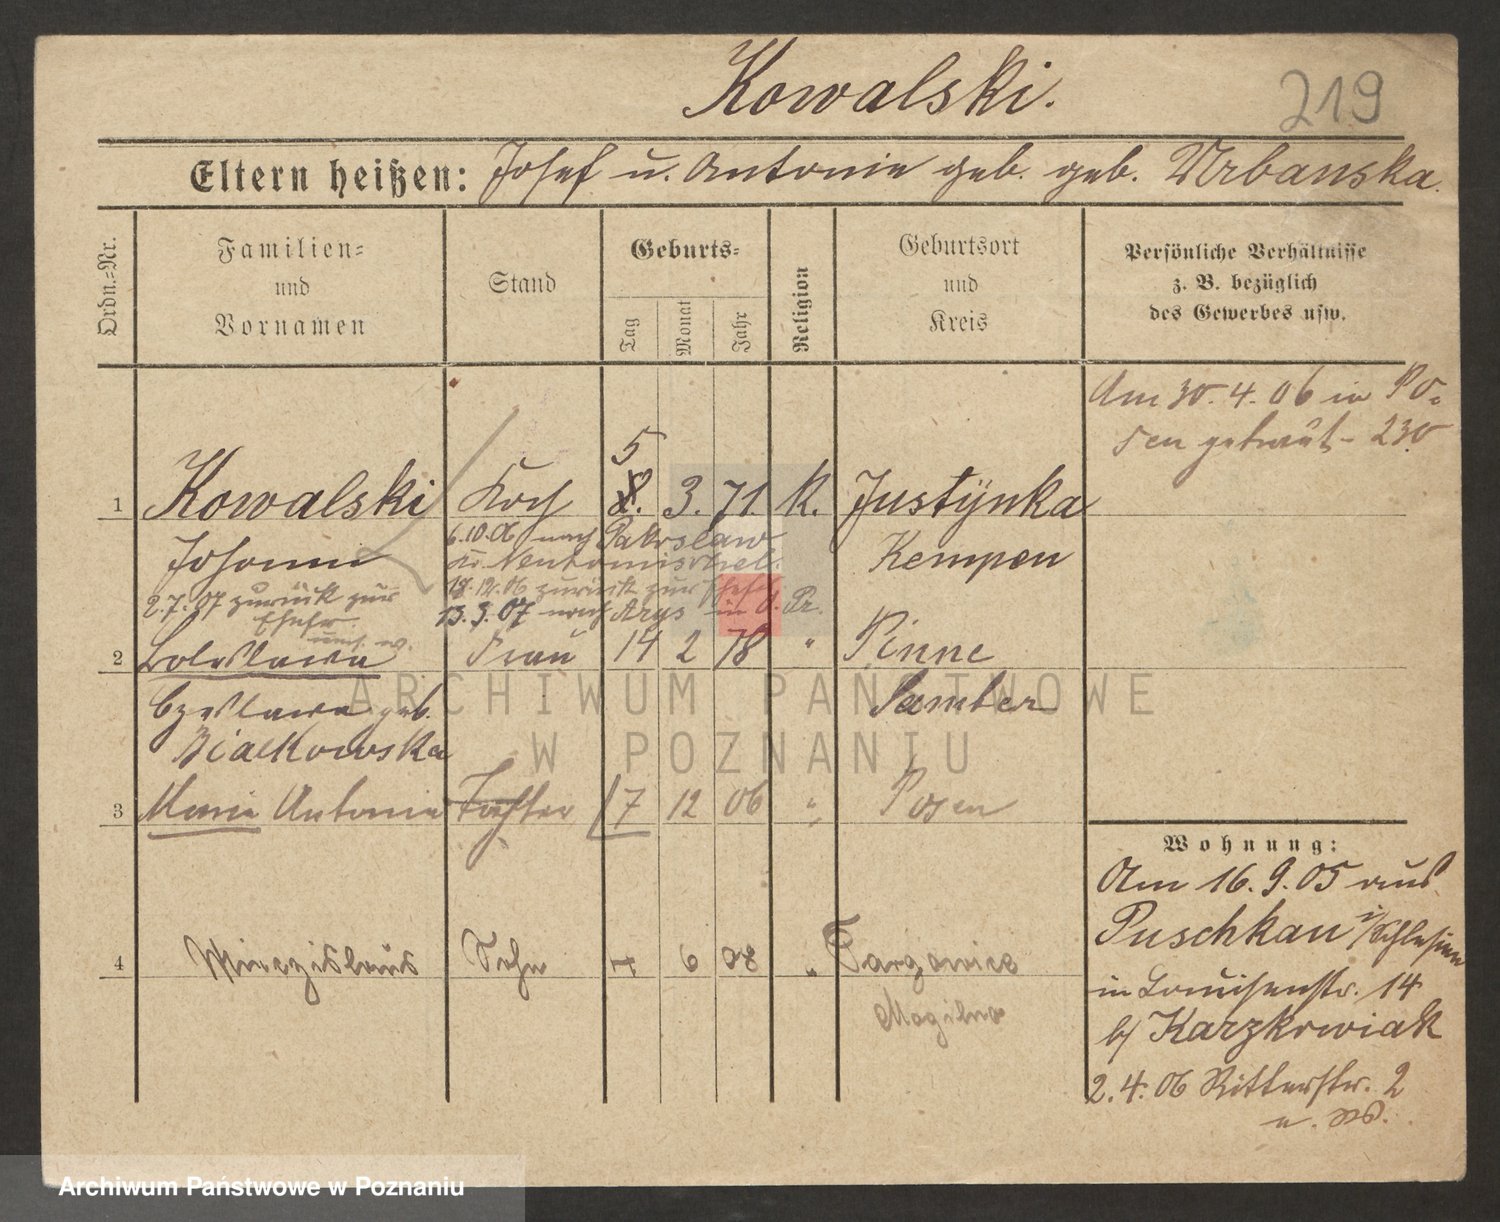 Kowalski.
219
Eltern heißen: Josef u. Antonie geb. geb. Urbanska.
Ordn.-Nr.
Familien-
und
Vornamen
Stand
Geburts-
Tag
Monat
Jahr
Religion
Geburtsort
und
Kreis
Persönliche Verhältnisse
z. B. bezüglich
des Gewerbes usw.
Am 30.4.06 in Po-
sen getraut - 230
5
1 Kowalski Koch 8. 3. 71. K. Justynka
6.10.06 nach Pakoslaw
Johann Kr. Neutomischel. Kempen
2.7.07 zurück zur 18.12.06 zurück zur
Ehefr. 13.3.07 nach Arys in O. Pr.
2 Boleslawa Frau 14 2 78 " Pinne
Czeslawa geb. Samter
Bialkowska
3 Marie Antonie Tochter 7 12 06 " Posen
Wohnung:
Am 16.9.05 aus
Puschkau i/Schlesien
4 Mieczislaus Sohn 4 6 08 " Targowice
in Louisenstr. 14
Mogilno
b/ Karzkowiak
2.4.06 Ritterstr. 2
ARCHIWUM PAŃSTWOWE
W POZNANIU
Archiwum Państwowe w Poznaniu